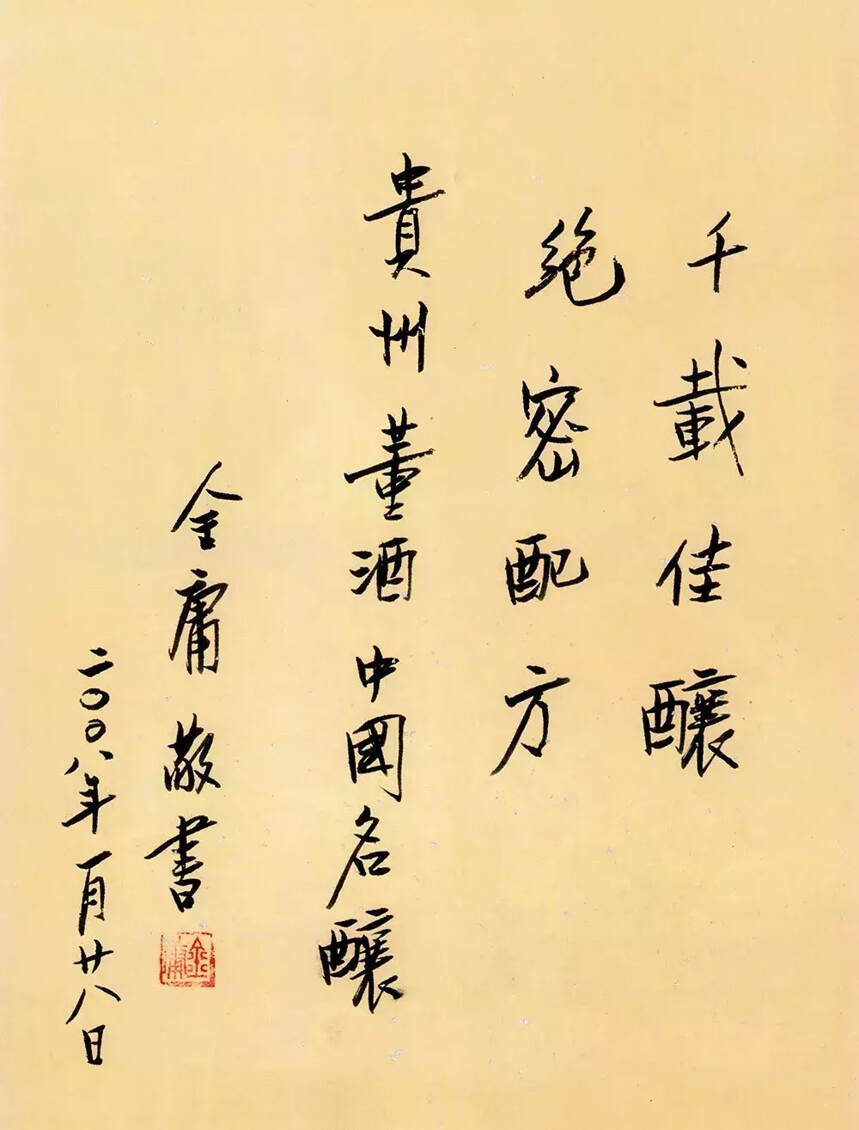 千載佳釀
絕密配方
貴州董酒中國名釀
金庸敬書
二〇〇八年一月廿八日
金庸